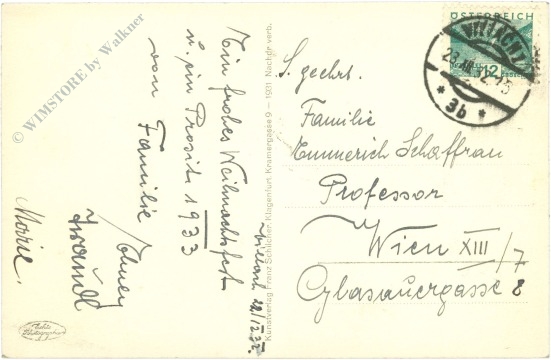 © WIMSTORE by Walkner
Ein frohes Weihnachtsfest
u. ein Prosit 1933
von Familie
Marie.
Villach 22/XII 32.
Kunstverlag Franz Schilcher, Klagenfurt, Kramergasse 9 — 1931 Nachdr. verb.
Echte
Photographie
ÖSTERREICH
12
VILLACH
23.XII.32
* 3b *
S. geehrt.
Familie
Emmerich Schaffran
Professor
Wien XIII/7
8